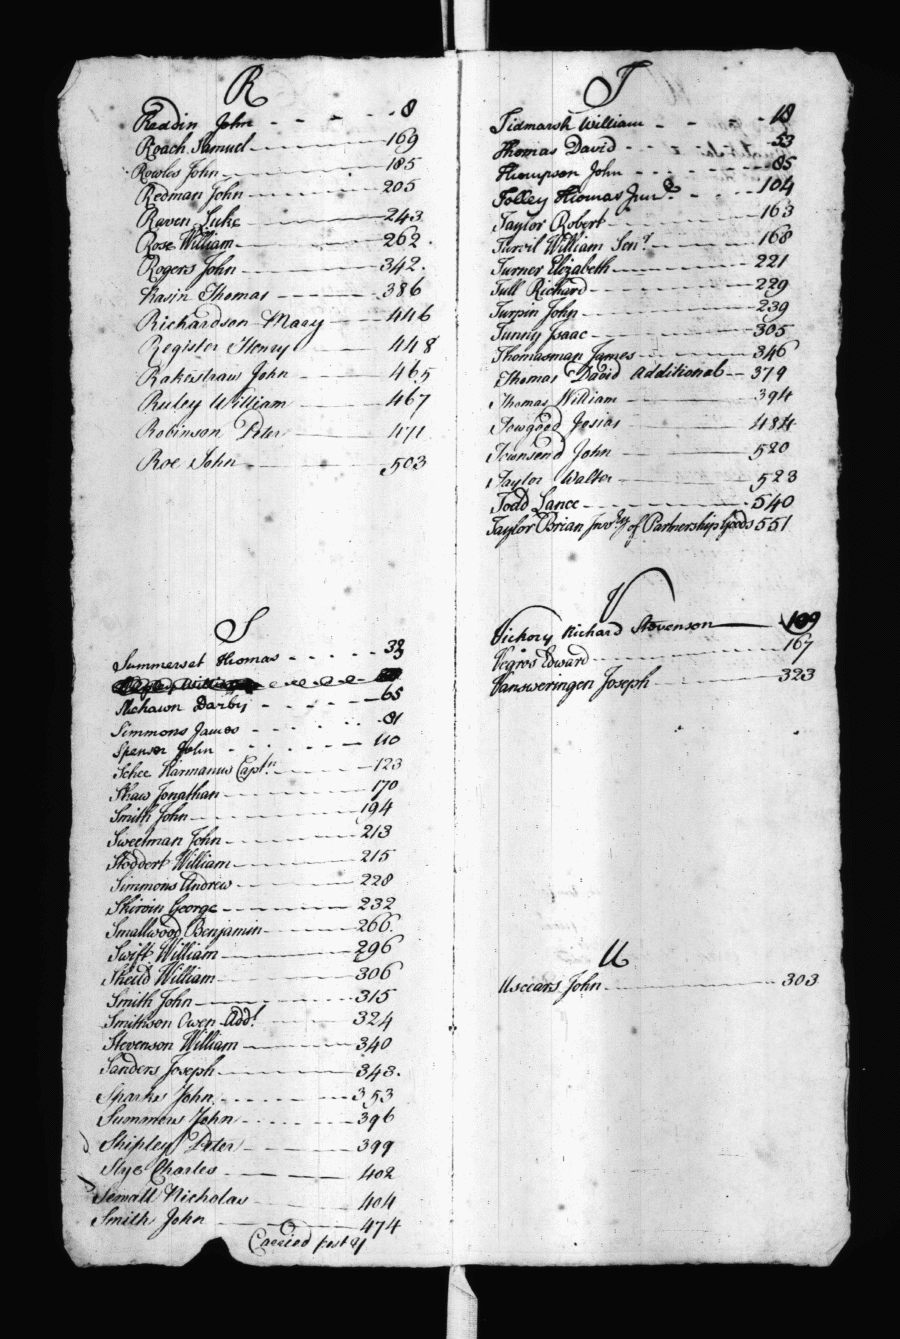 R
Reddin John 8
Roach Samuel 169
Rowles John 185
Redman John 205
Raven Luke 243
Rose William 262
Rogers John 342
Rasin Thomas 386
Richardson Mary 446
Register Henry 448
Rakestraw John 465
Ruley William 467
Robinson Peter 471
Roe John 503
S
Summerset Thomas 33
Mchawn Darby 65
Simmons James 81
Spenser John 110
Schee Harmanus Captn. 123
Shaw Jonathan 170
Smith John 194
Sweetman John 213
Stoddert William 215
Simmons Andrew 228
Skirvin George 232
Smallwood Benjamin 266
Swift William 296
Sheild William 306
Smith John 315
Smithson Owen Addl. 324
Stevenson William 340
Sanders Joseph 343.
Sparks John 353
Summers John 396
Shipley Peter 399
Slye Charles 402
Semall Nicholas 404
Smith John 474
Carried post
T
Tidmarsh William 18
Thomas David 53
Thompson John 85
Tolley Thomas Junr. 104
Taylor Robert 163
Turvil William Senr. 168
Turner Elizabeth 221
Tull Richard 229
Turpin John 239
Tunny Isaac 305
Thomasman James 346
Thomas David Additional 379
Thomas William 394
Towgood Josias 484
Townsend John 520
Taylor Walter 523
Todd Lance 540
Taylor Brian Invry of Partnership Goods 551
V
Vickory Richard Stevenson 109
Vegros Edward 167
Vansweringen Joseph 323
U
John 303